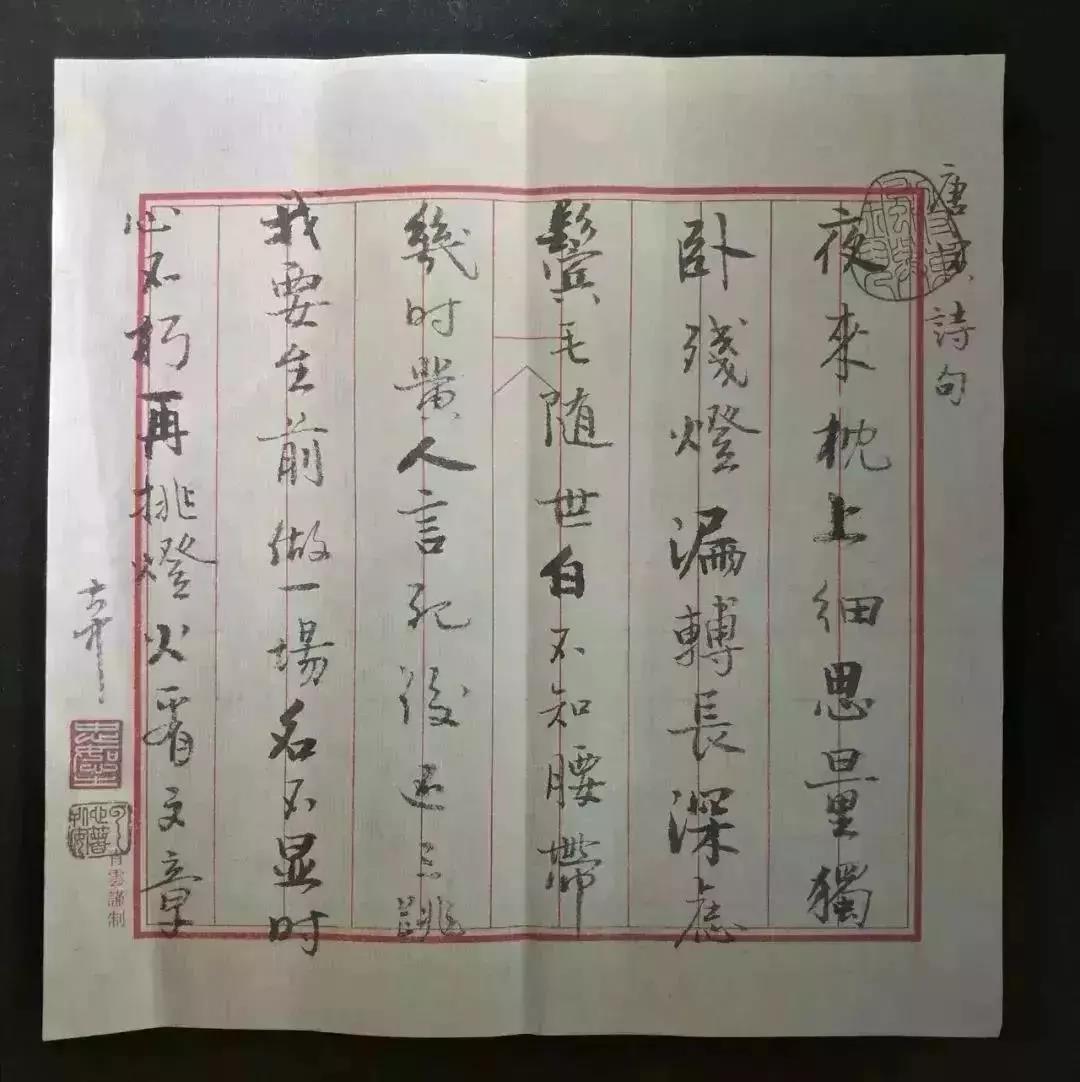 唐寅詩句
夜來枕上細思量獨
卧殘燈漏轉長深慮
鬢毛随世白不知腰帶
幾时黄人言死後还三跳
我要生前做一場名不显时
心不朽再挑燈火看文章
青雲謹制